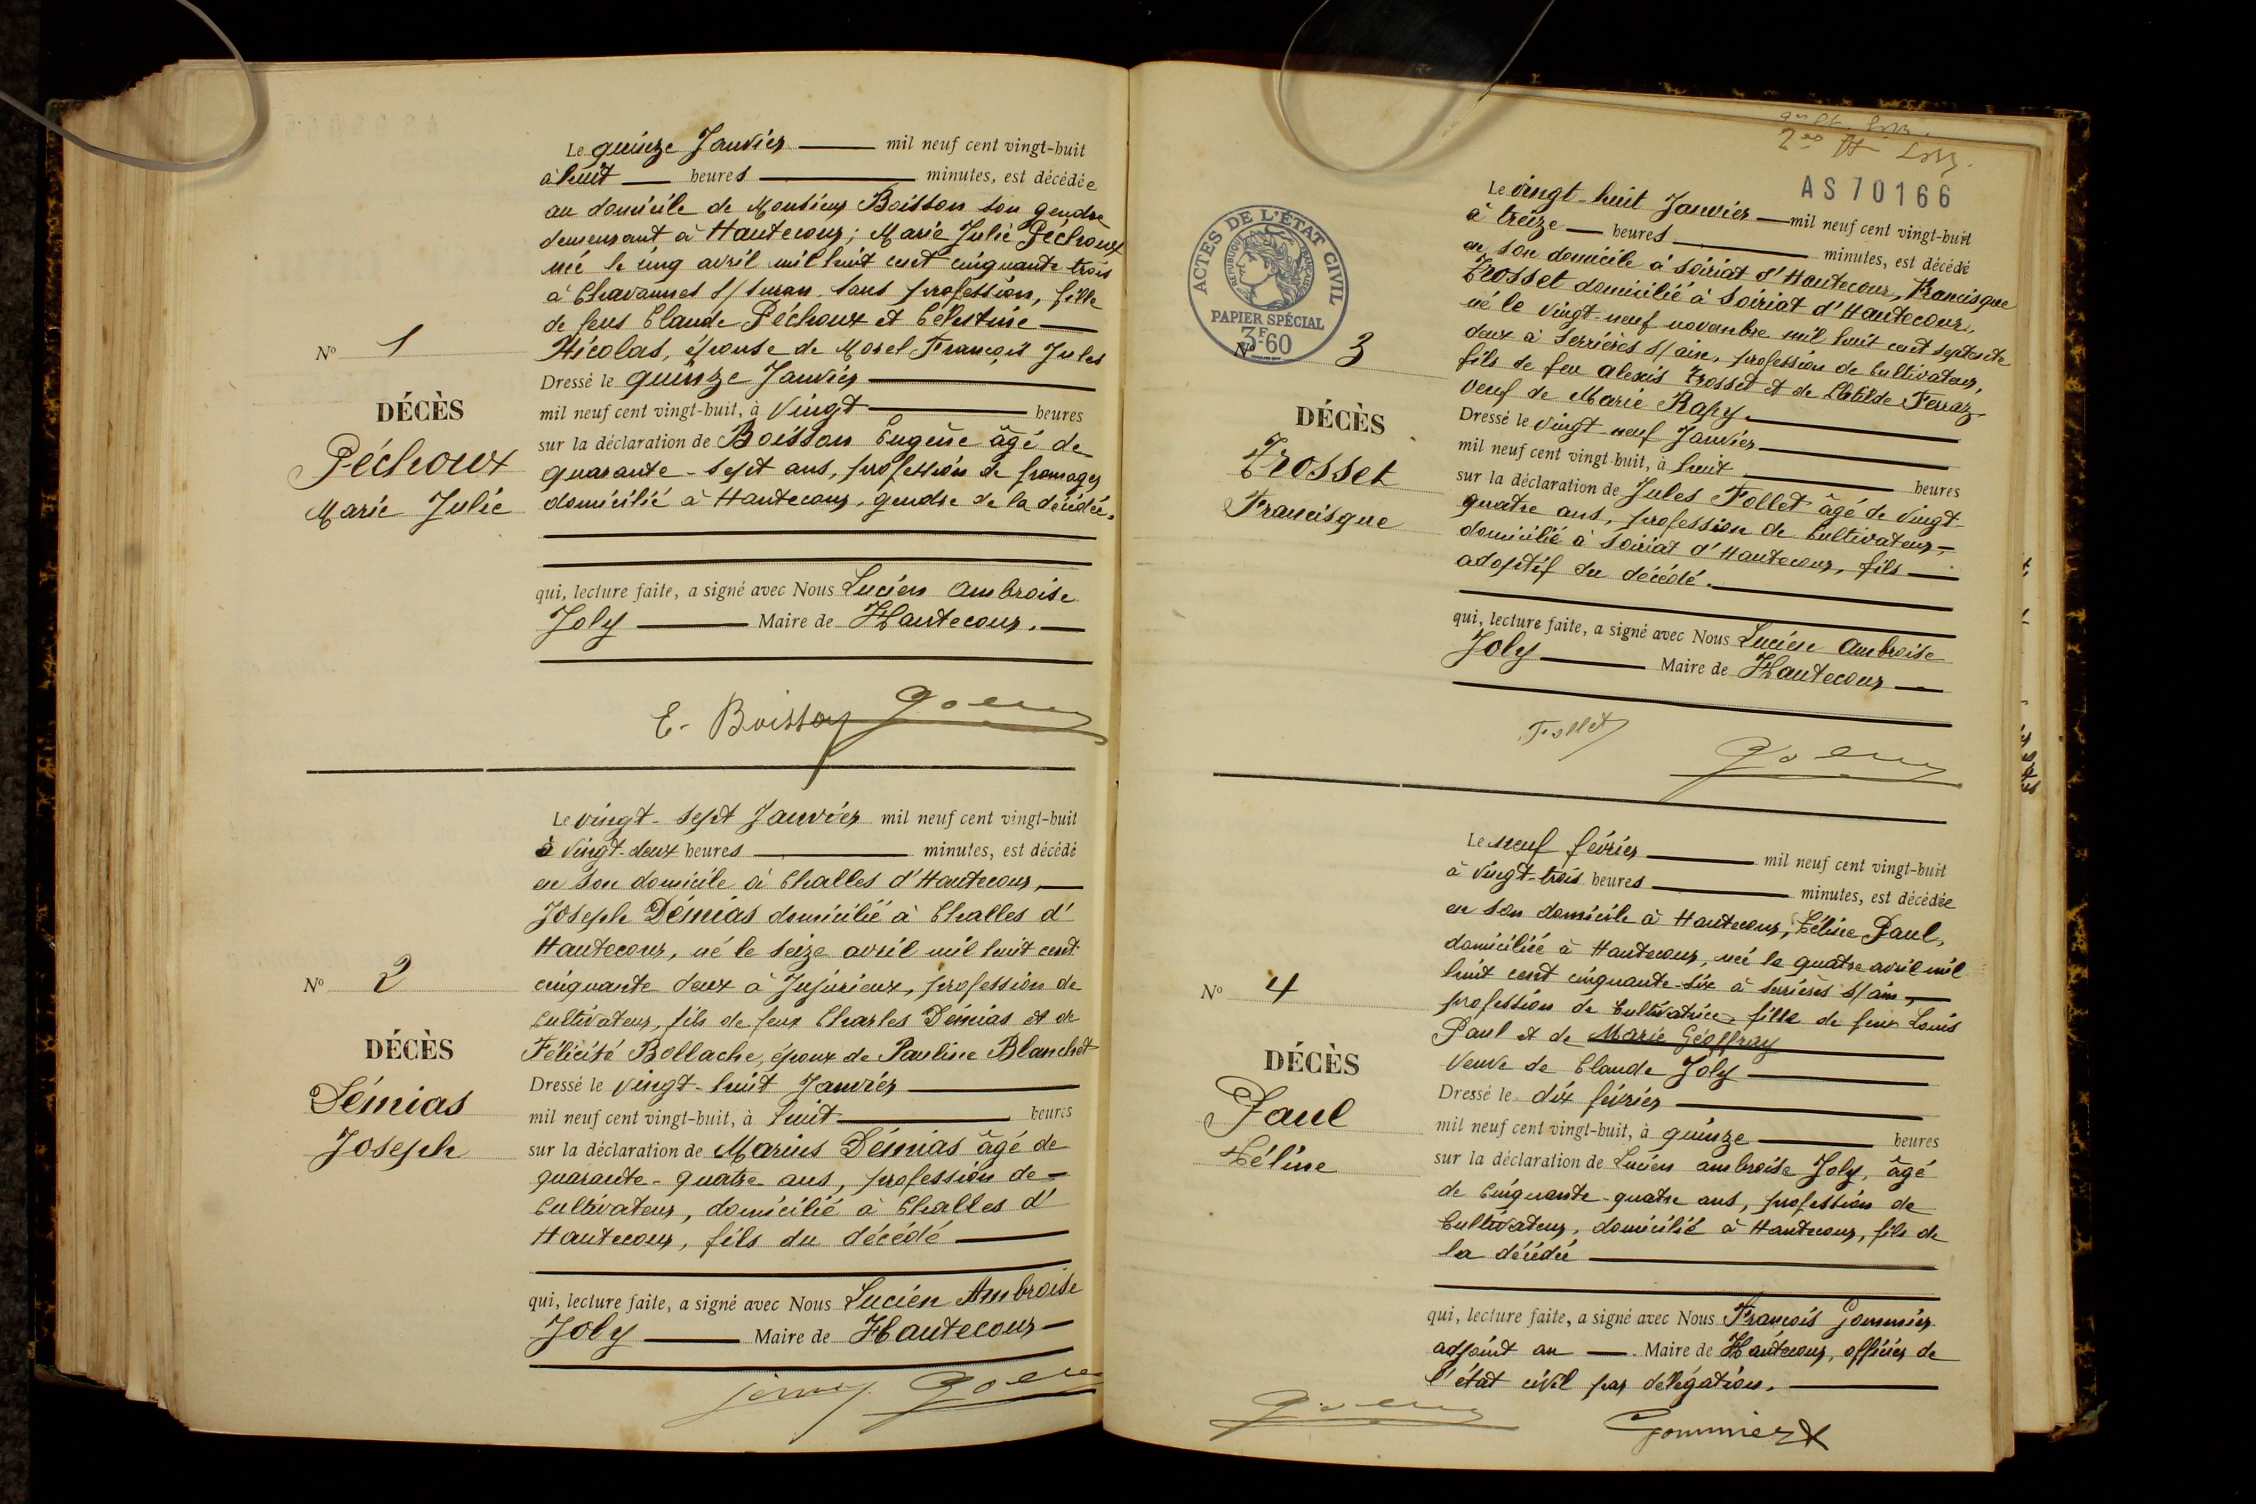 Le quinze Janvier mil neuf cent vingt-huit
à huit heures minutes, est décédée
au domicile de Monsieur Boisson son gendre
demeurant à Hautecour ; Marie Julie Péchoux
née le cinq avril mil huit cent cinquante trois
à Chavannes s/ suran, sans profession, fille
de feus Claude Péchoux et Célestine
Nicolas, épouse de Morel François Jules
Nº 1
DÉCÈS
Péchoux
Marie Julie
Dressé le quinze Janvier
mil neuf cent vingt-huit, à Vingt heures
sur la déclaration de Boisson Eugène âgé de
quarante-sept ans, profession de fromager
domicilié à Hautecour, gendre de la décédée.
qui, lecture faite, a signé avec Nous Lucien Ambroise
Joly Maire de Hautecour.
E. Boisson
Le vingt-sept Janvier mil neuf cent vingt-huit
à Vingt-deux heures minutes, est décédé
en son domicile à Challes d'Hautecour,
Joseph Démias domicilié à Challes d'
Hautecour, né le seize avril mil huit cent
cinquante deux à Jujurieux, profession de
Cultivateur, fils de feux Charles Démias et de
Félicité Bollache, époux de Pauline Blanchet
Nº 2
DÉCÈS
Démias
Joseph
Dressé le vingt-huit Janvier
mil neuf cent vingt-huit, à huit heures
sur la déclaration de Marius Démias âgé de
quarante-quatre ans, profession de
Cultivateur, domicilié à Challes d'
Hautecour, fils du décédé
qui, lecture faite, a signé avec Nous Lucien Ambroise
Joly Maire de Hautecour
AS 70166
ACTES DE L'ÉTAT CIVIL
RÉPUBLIQUE FRANÇAISE
PAPIER SPÉCIAL
3F60
Le vingt-huit Janvier mil neuf cent vingt-huit
à treize heures minutes, est décédé
en son domicile à Soiriat d'Hautecour, Francisque
Trosset domicilié à Soiriat d'Hautecour,
né le vingt-neuf novembre mil huit cent septante
deux à Serrières s/ ain, profession de Cultivateur,
fils de feu Alexis Trosset et de Clotilde Ferraz
veuf de Marie Rapy
Nº 3
DÉCÈS
Trosset
Francisque
Dressé le vingt-neuf Janvier
mil neuf cent vingt-huit, à huit heures
sur la déclaration de Jules Follet âgé de vingt
quatre ans, profession de Cultivateur,
domicilié à Soiriat d'Hautecour, fils
adoptif du décédé.
qui, lecture faite, a signé avec Nous Lucien Ambroise
Joly Maire de Hautecour
Follet
Le neuf février mil neuf cent vingt-huit
à vingt-trois heures minutes, est décédée
en son domicile à Hautecour, Céline Paul,
domiciliée à Hautecour, née le quatre avril mil
huit cent cinquante-six à Serrières s/ ain,
profession de Cultivatrice, fille de feux Louis
Paul et de Marie Géoffray
Veuve de Claude Joly
Nº 4
DÉCÈS
Paul
Céline
Dressé le dix février
mil neuf cent vingt-huit, à quinze heures
sur la déclaration de Lucien Ambroise Joly, âgé
de Cinquante-quatre ans, profession de
Cultivateur, domicilié à Hautecour, fils de
la décédée
qui, lecture faite, a signé avec Nous François Gommier
adjoint au Maire de Hautecour, officier de
l'état civil par délégation.
Gommier